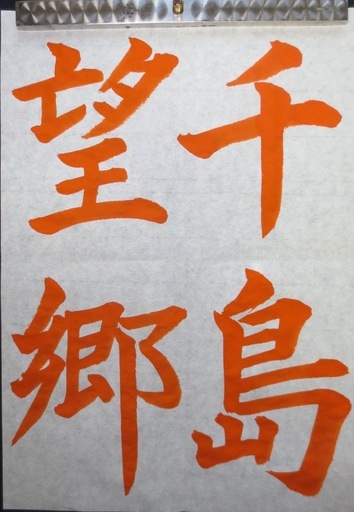 千島
望郷